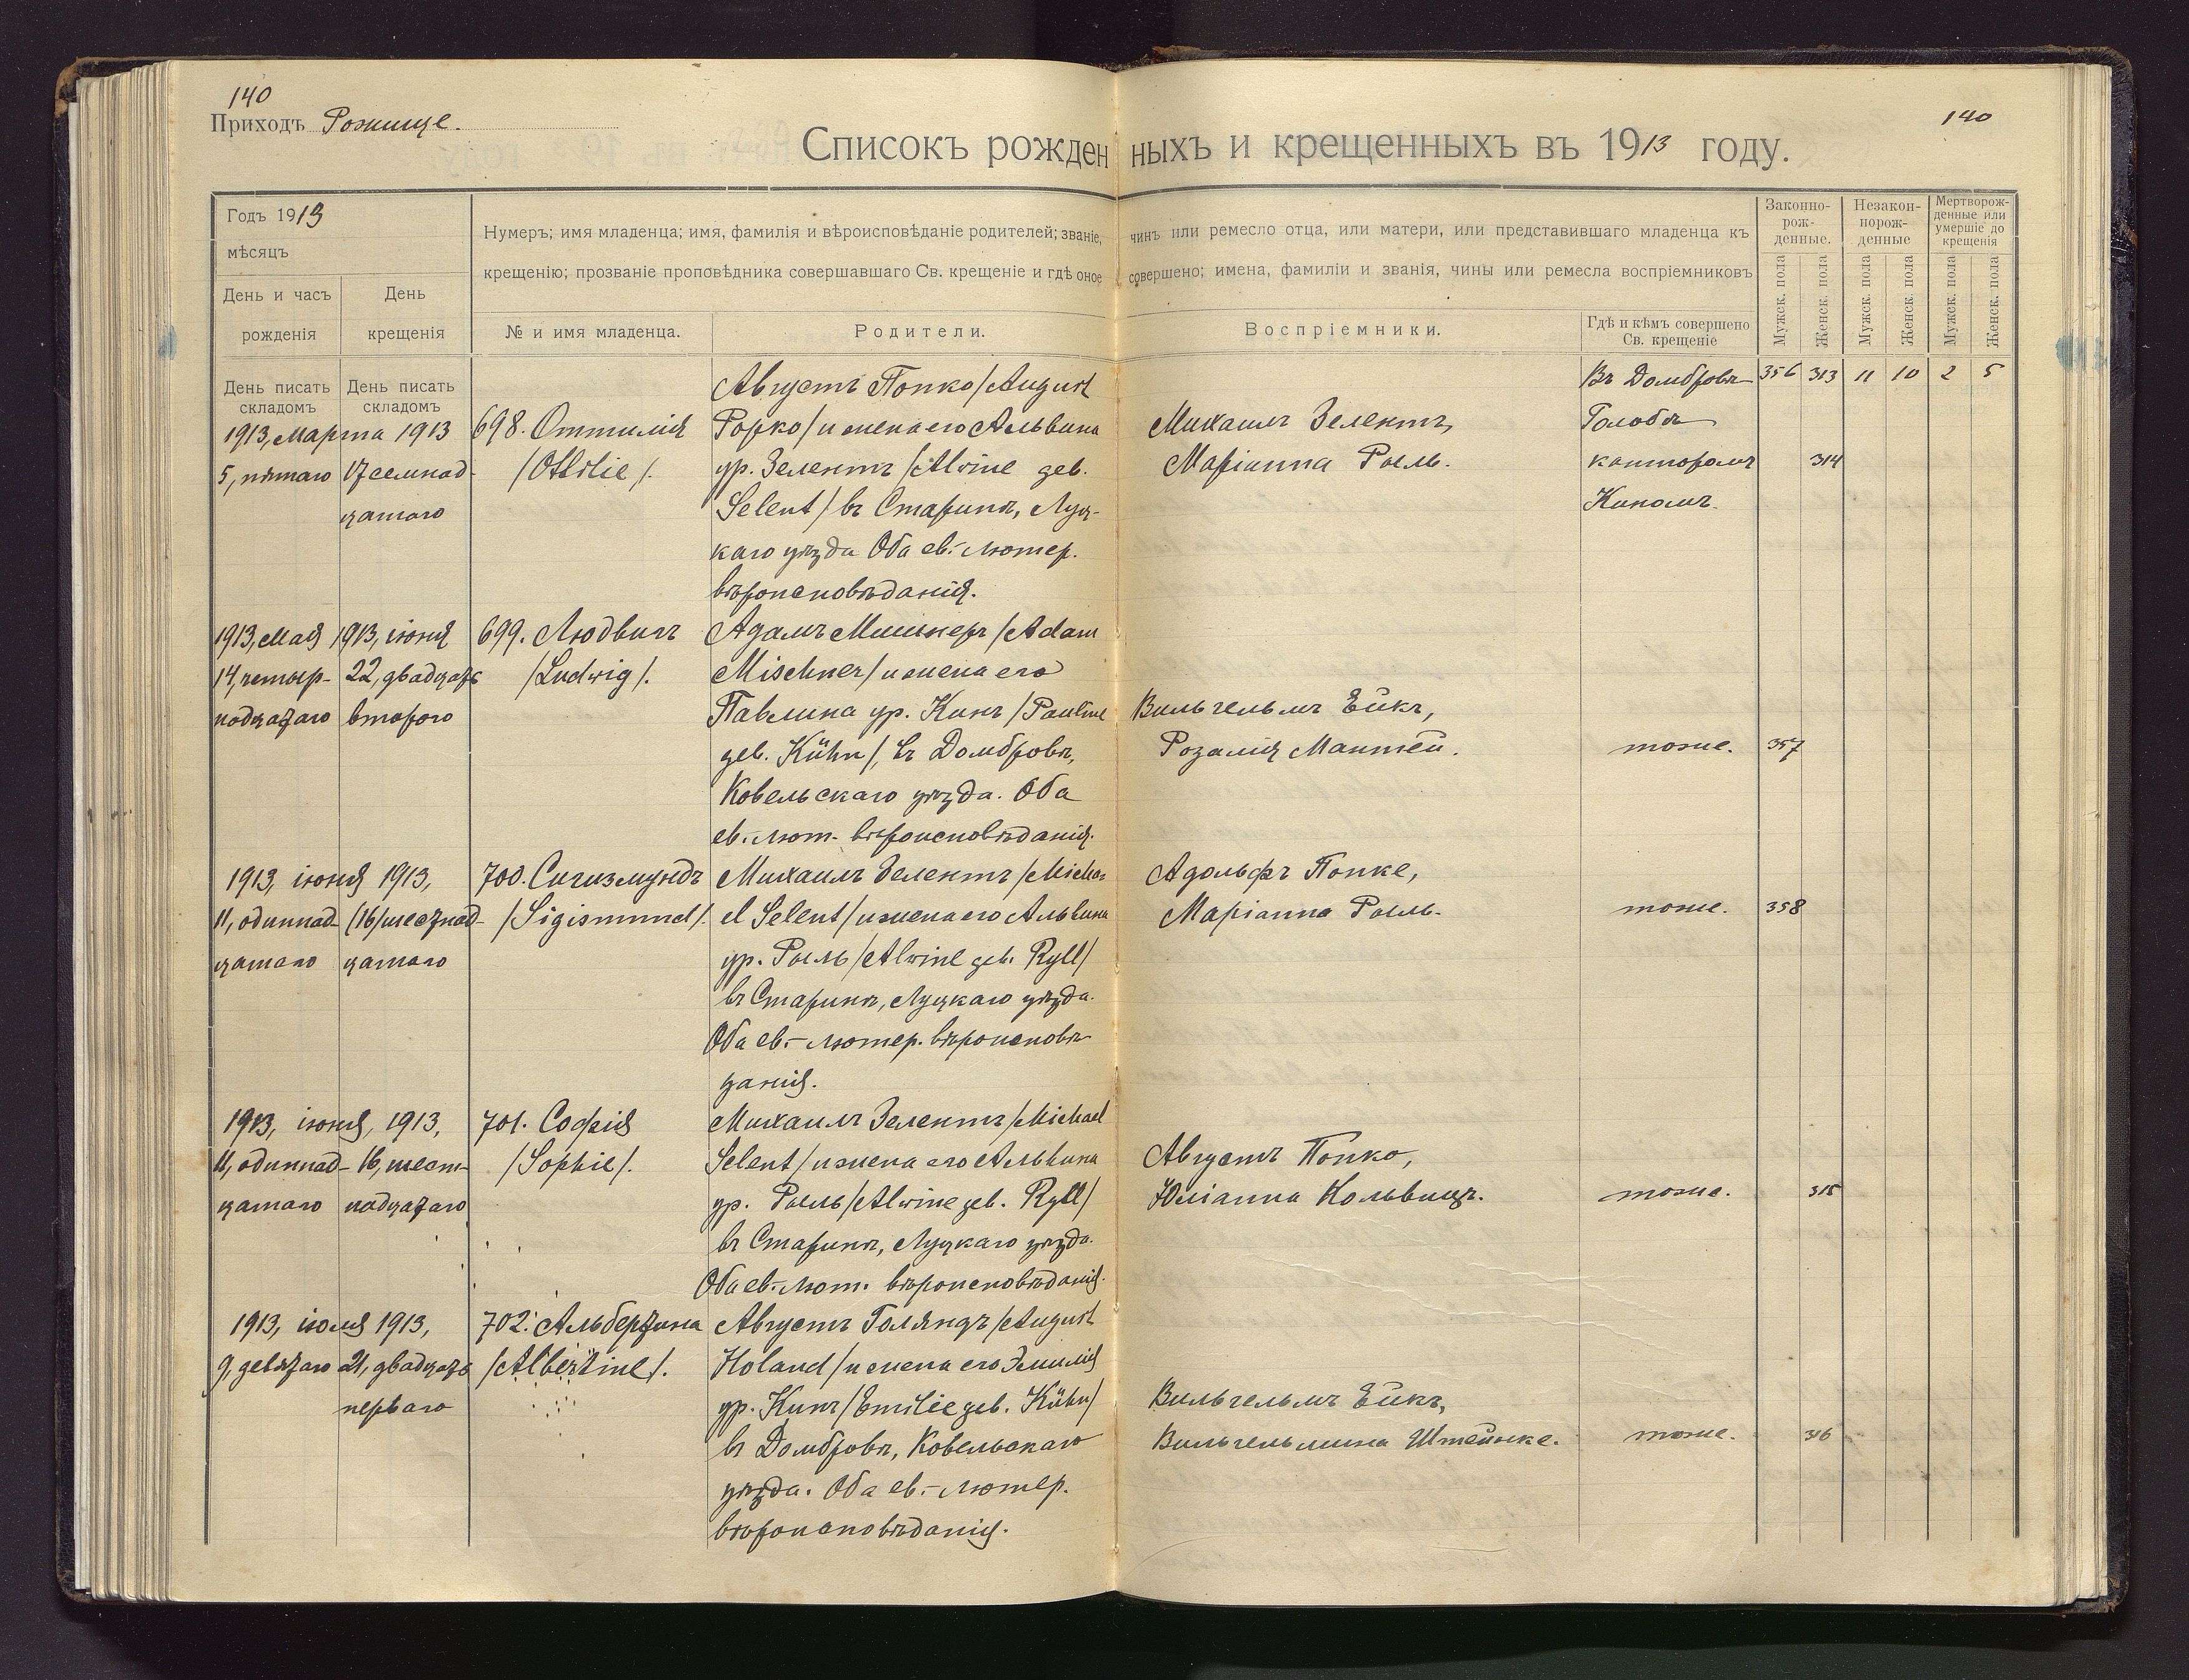 140
Приходъ Рожище.
140
Списокъ рожденныхъ и крещенныхъ въ 1913 году.
Годъ 1913
мѣсяцъ
День и часъ рожденія
День крещенія
Нумеръ; имя младенца; имя, фамилія и вѣроисповѣданіе родителей; званіе, чинъ или ремесло отца, или матери, или представившаго младенца къ
крещенію; прозваніе проповѣдника совершавшаго Св. крещеніе и гдѣ оное совершено; имена, фамиліи и званія, чины или ремесла воспріемниковъ
№ и имя младенца.
Родители.
Воспріемники.
Гдѣ и кѣмъ совершено
Св. крещеніе
Законно-
рож-
денные.
Незакон-
норож-
денные
Мертворож-
денные или
умершіе до
крещенія
Мужск. пола
Женск. пола
Мужск. пола
Женск. пола
Мужск. пола
Женск. пола
День писать
складомъ
День писать
складомъ
356 313 11 10 2 5
1913, Марта 1913
5, пятаго 17 семнад-
цатаго
698. Оттилія
/Ottilie/.
Августъ Попко /August
Popko/ и жена его Альвина
ур. Зелентъ /Alwine geb.
Selent/ въ Старинѣ, Луц-
каго уѣзда Оба ев.-лютер.
вѣроисповѣданія.
Михаилъ Зелентъ,
Маріанна Рыль.
Въ Домбровѣ-
Голобы
канторомъ
Киномъ.
314
1913, Мая 1913, іюня
14, четыр- 22, двадцать
надцатаго втораго
699. Людвигъ
/Ludwig/.
Адамъ Мишнеръ /Adam
Mischner/ и жена его
Павлина ур. Кинъ /Pauline
geb. Kühn/, въ Домбровѣ,
Ковельскаго уѣзда. Оба
ев.-лют. вѣроисповѣданія.
Вильгельмъ Ейкъ,
Розалія Мантей.
тоже.
357
1913, іюня 1913,
11, одиннад- (16) шестнад-
цатаго цатаго
700. Сигизмундъ
/Sigismund/.
Михаилъ Зелентъ /Micha-
el Selent/ и жена его Альвина
ур. Рыль /Alwine geb. Ryll/
въ Старинѣ, Луцкаго уѣзда.
Оба ев.-лютер. вѣроисповѣ-
данія.
Адольфъ Попке,
Маріанна Рыль.
тоже.
358
1913, іюня, 1913,
11, одиннад- 16, шест-
цатаго надцатаго
701. Софія
/Sophie/.
Михаилъ Зелентъ /Michael
Selent/ и жена его Альвина
ур. Рыль /Alwine geb. Ryll/
въ Старинѣ, Луцкаго уѣзда.
Оба ев.-лют. вѣроисповѣданія.
Августъ Попко,
Юліанна Кольвицъ.
тоже.
315
1913, іюля 1913,
9, девятаго 21, двадцать
перваго
702. Альбертина
/Albertine/.
Августъ Голяндъ /August
Holand/ и жена его Эмилія
ур. Кинъ /Emilie geb. Kühn/
въ Домбровѣ, Ковельскаго
уѣзда. Оба ев.-лютер.
вѣроисповѣданія.
Вильгельмъ Ейкъ,
Вильгельмина Штейнке.
тоже.
316